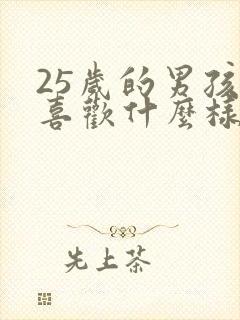 25歲的男孩
喜歡什麼樣
先上茶